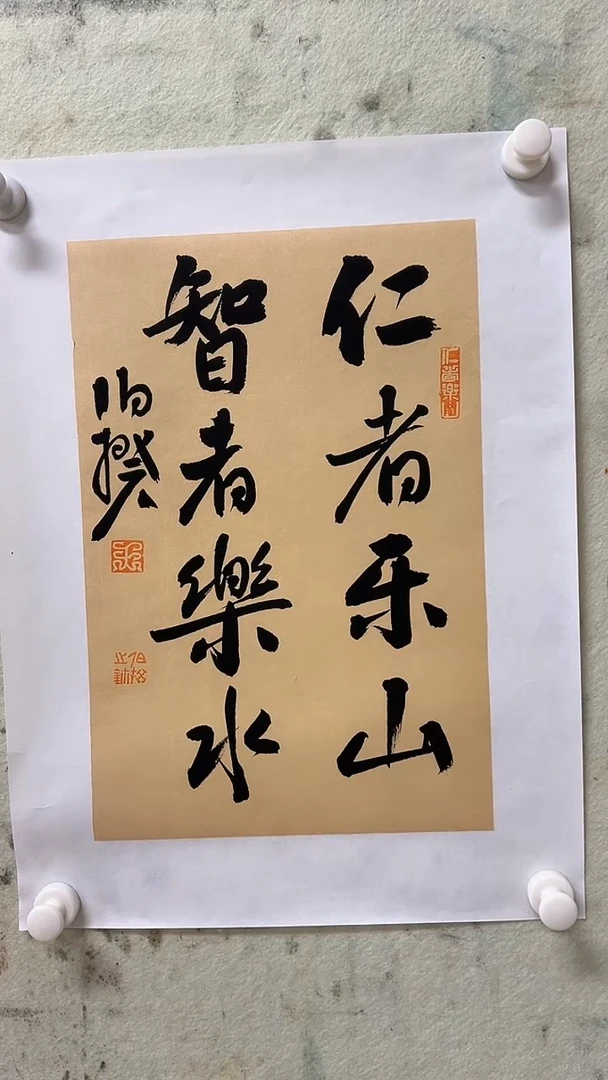 仁者乐山
智者樂水
伯揆